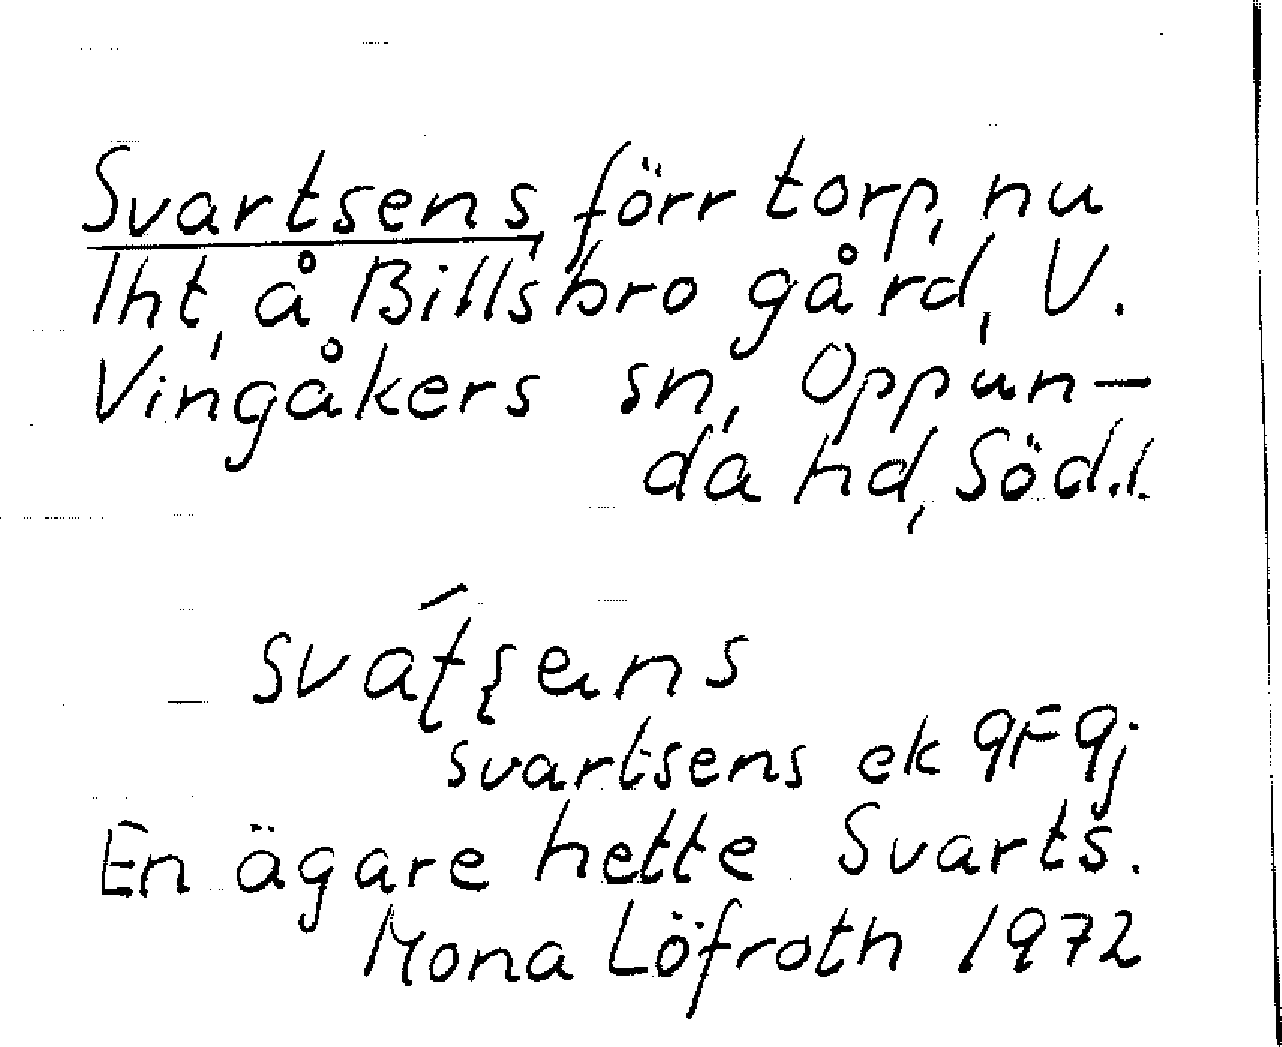 Svartsens, förr torp, nu
lht, å Billsbro gård, V.
Vingåkers sn, Oppun-
da hd, Söd.l.
svartsens ek 9F9j
En ägare hette Svarts.
Mona Löfroth 1972